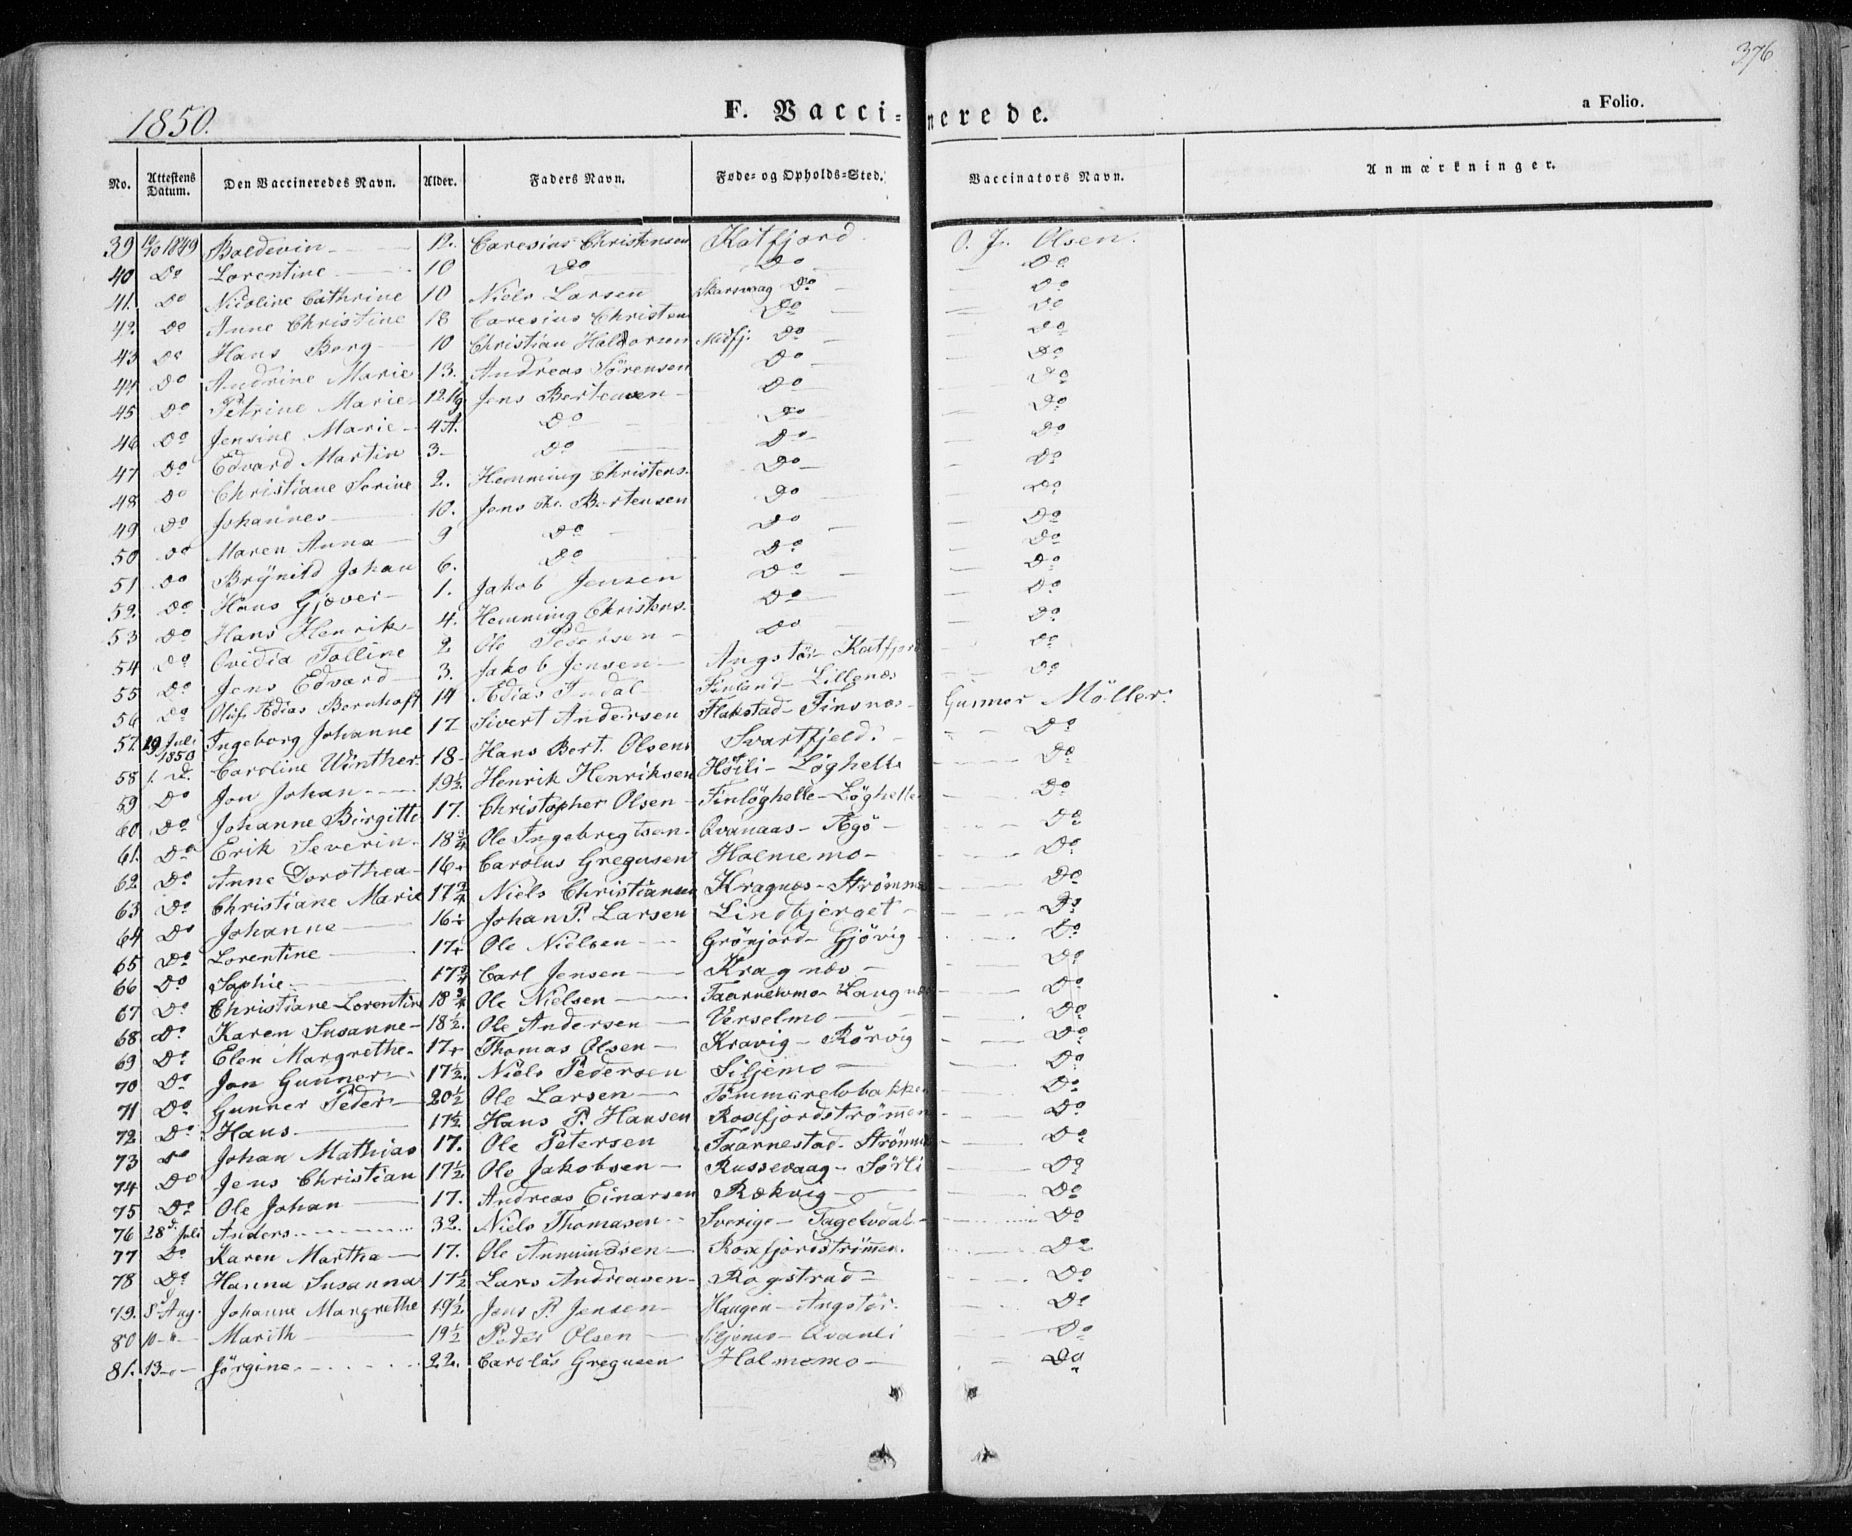 376
1850. F. Vaccinerede. a Folio.
No. Attestens Datum. Den Vaccineredes Navn. Alder. Faders Navn. Føde- og Opholds-Sted. Vaccinators Navn. Anmærkninger.
39 1849 Baldevin 12. Caresius Christensen Katfjord O. J. Olsen.
40 Do Lorentine 10 Do Do Do
41. Do Nicoline Cathrine 10 Niels Larsen Do Do
42. Do Anne Christine 18 Caresius Christens Do Do
43 Do Hans Borg 10 Christian Haldorsen Midfj. Do Do
44 Do Andrine Marie 13. Andreas Sörensen Do Do
45 Do Petrine Marie 12 Jens Bertensen Do Do
46 Do Jensine Marie 4 Do Do Do
47 Do Edvard Martin 3 Do Do Do
48 Do Christiane Serine 2. Hemming Christens. Do Do
49 Do Johannes 10. Jens Bertensen Do Do
50 Do Maren Anna 9 Do Do Do
51 Do Brÿnild Johan 6. Do Do Do
52. Do Hans Gjæver 1. Jakob Jensen Do Do
53 Do Hans Henrik 4. Hemming Christens. Do Do
54 Do Ovidia Tolline 2 Ole Pedersen Do Do
55 Do Jens Edvard 3. Jakob Jensen Angstör Katfjord Do
56 Do Oluf Edias Bernhoft 14 Edias Indal Finland Lillenæs Do
57. 19 Juli 1850 Ingeborg Johanne 17 Sivert Andersen Flakstad Finsnæs Gunnar Möller.
58 Do Caroline Winther 18 Hans Bert. Olsen Svartfjeld. Do
59 Do Jon Johan 19½ Henrik Henriksen Höili Löghelle Do
60 Do Johanne Birgitte 17. Christopher Olsen Finlöghelle Löghelle Do
61. Do Erik Severin 18¾ Ole Ingebregtsen Qvanaas Do
62 Do Anne Dorothea 16 Carolus Gregusen Holmemo Do
63 Do Christiane Marie 17¾ Niels Christiansen Kragnæs Strömmen Do
64 Do Johanna 16 Johan P. Larsen Lindbjerget Do
65 Do Lorentine 17 Ole Nielsen Grönjord Gjövig Do
66 Do Sophie 17¾ Carl Jensen Kragnæs Do
67 Do Christiane Lorentin 18¾ Ole Nielsen Langnæs Do
68 Do Karen Susanne 18½. Ole Andersen Verselmo Do
69 Do Elen Margrethe 17 Thomas Olsen Kravig Rörvig Do
70 Do Jon Gunner 17½. Niels Pedersen Siljemo Do
71 Do Gunner Peder 20½ Ole Larsen Tömmerelvbakken Do
72 Do Hans 17½ Hans P. Hansen Rossfjordströmmen Do
73 Do Johan Mathias 17. Ole Petersen Taarnestad Strömmen Do
74 Do Jens Christian 17½ Ole Jakobsen Russevaag Sörli Do
75 Do Ole Johan 17. Andreas Einarsen Rækvig Do
76 28d Juli Anders 32. Niels Thomasen Sverige Tagelvdal Do
77 Do Karen Martha 17. Ole Anmundsen Rossfjordströmmen. Do
78 Do Hanna Susanna 17½ Lars Andreasen Rogstrad Do
79. 8 Aug. Johanne Margrethe 19½ Jens P. Jensen Haugen Angstör. Do
80 10 " Marith 19½ Peder Olsen Siljemo Qvanli Do
81. 13 Jörgine 22. Carolus Gregusen Holmemo Do